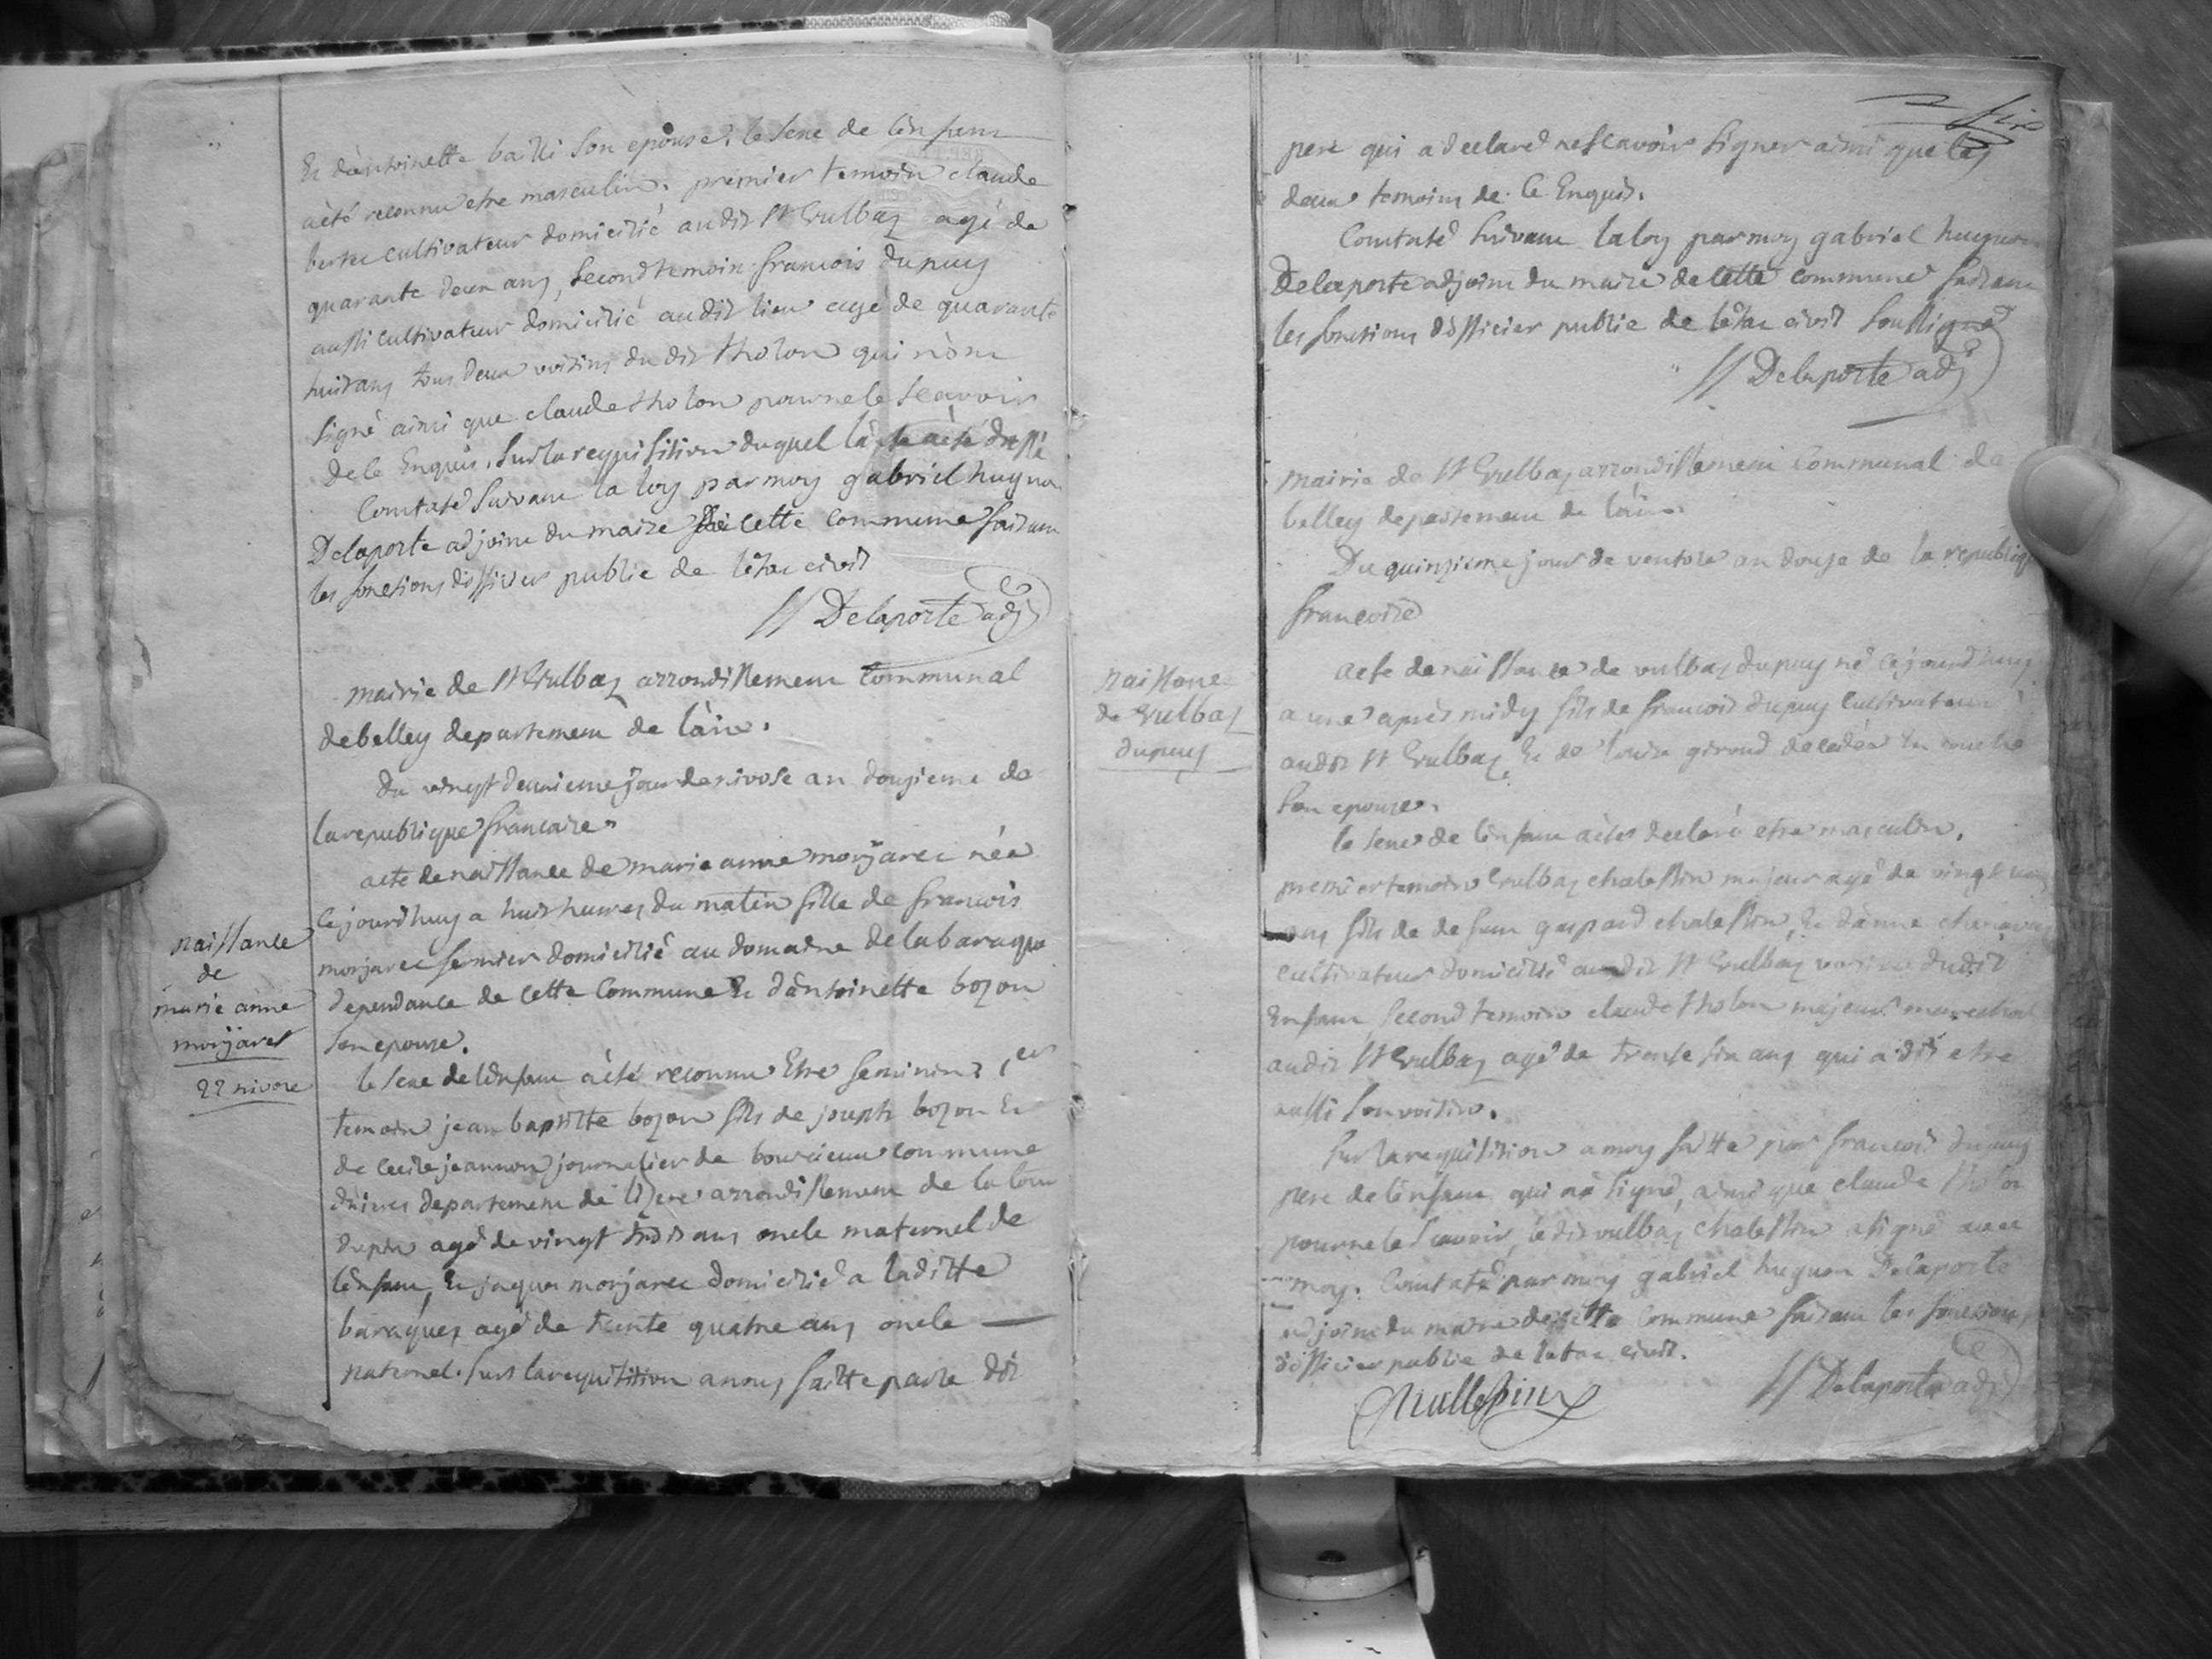 Et d'antoinette bailli son epouse, le sexe de l'enfant
a été reconnu etre masculin. premier temoin claude
cultivateur domicilié audit St Vulbaz agé de
quarante deux ans, second temoin francois dupuy
aussi cultivateur domicilié audit lieu agé de quarante
huit ans tous deux voisins dudit tholon qui n'ont
signé ainsi que claude tholon pour ne le scavoir
de ce Enquis. sur la requisition duquel l'acte a été dressé
Constaté suivant la loy par moy gabriel hugnon
Delaporte adjoint du maire de cette commune faisant
les fonctions d'officier public de l'état civil
Delaporte adj
mairie de St Vulbaz arrondissement Communal
de belley departement de l'ain.
du vingt deuxieme jour de nivose an douzieme de
la republique francaise.
acte de naissance de marie anne monjaret née
ce jourdhuy a huit heures du matin fille de francois
monjaret fermier domicilié au domaine de la baraque
dependance de cette Commune Et d'antoinette bozon
son epouse.
le sexe de l'enfant a été reconnu Etre feminin, 1er
temoin jean baptiste bozon fils de joseph bozon Et
de cecile jeannon journalier de bourcieux commune
departement de l'izere arrondissement de la tour
dupin agé de vingt trois ans oncle maternel de
l'enfant, Et jaques monjaret domicilié a laditte
baraques agé de trente quatre ans oncle
paternel. sur la requisition a nous faitte par le dit
naissance
de
marie anne
monjaret
22 nivose
six
pere qui a declaré ne scavoir signer ainsi que les
deux temoins de Ce Enquis.
Constaté suivant la loy par moy gabriel hugnon
Delaporte adjoint du maire de cette commune faisant
les fonctions d'officier public de l'état civil soussigné
Delaporte adj
mairie de St Vulbaz arrondissement Communal de
belley departement de l'ain.
Du quinzieme jour de ventose an douze de la republique
francoise
acte de naissance de vulbaz dupuy né ce jourdhuy
a une apres midy fils de francois dupuy Cultivateur
audit St Vulbaz Et de louise giroud
son epouse.
le sexe de l'enfant a été declaré etre masculin.
premier temoin Vulbaz chalessin majeur agé de vingt
ans fils de defunt gaspard chalessin, Et d'anne
cultivateur domicilié audit St Vulbaz voisin dudit
Enfant second temoin claude tholon majeur marechal
audit St Vulbaz agé de trente six ans qui a dit etre
aussi son voisin.
sur la requisition a moy faitte par francois dupuy
pere de l'enfant qui n'a signé, ainsi que claude tholon
pour ne le scavoir, ledit vulbaz chalessin a signé avec
moy. Constaté par moy gabriel hugnon Delaporte
adjoint du maire de cette Commune faisant les fonctions
d'officier public de l'état civil.
Challessin
Delaporte adj
naissance
de Vulbaz
dupuy